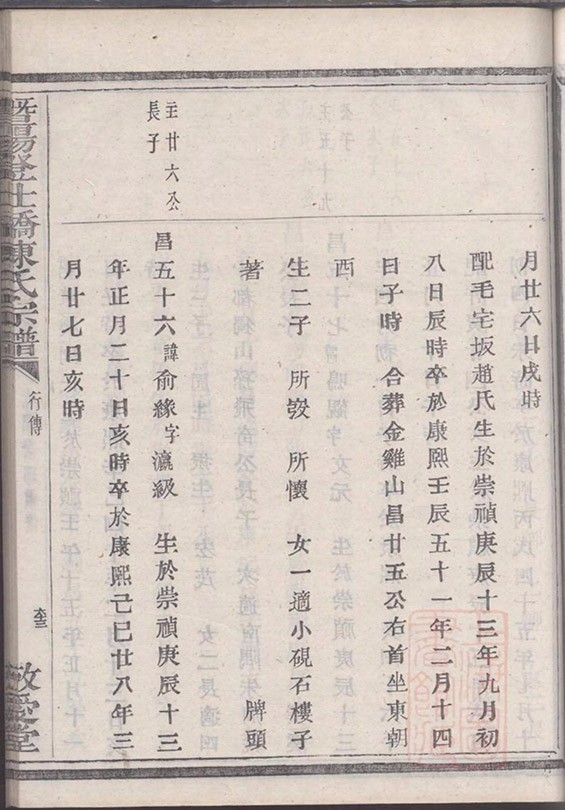 月廿六日戌時
配毛宅坂趙氏生於崇禎庚辰十三年九月初
八日辰時卒於康熙壬辰五十一年二月十四
日子時 合葬金雞山昌廿五公右首坐東朝
西
生二子 所發 所懷 女一適小硯石樓子
著 牌頭
圭廿六公
長子
昌五十六 諱俞緣字瀛級 生於崇禎庚辰十三
年正月二十日亥時卒於康熙己巳廿八年三
月廿七日亥時
暨陽澄仕橋陳氏宗譜
行傳
敬愛堂